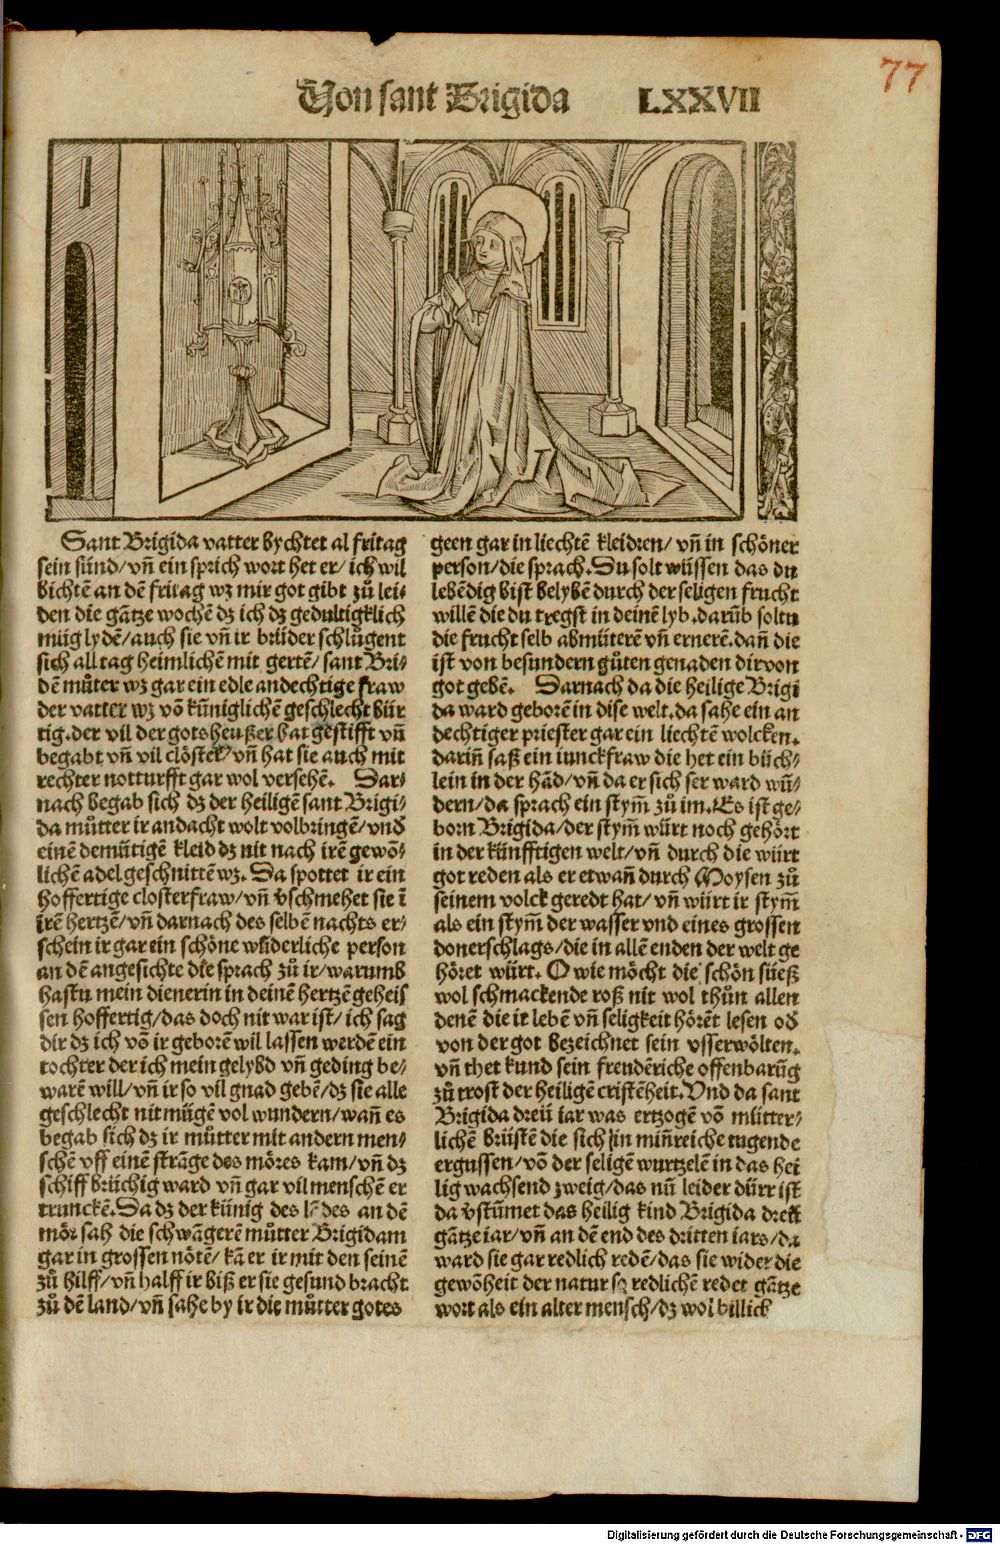 77
Von sant Brigida LXXVII
Sant Brigida vatter bychtet al fritag
sein sünd/vñ ein sprich wort het er/ich wil
bichtē an dē fritag wz mir got gibt zů lei-
den die gātze wochē dz ich dz gedultigklich
müg lydē/auch sie vñ ir brüder schlůgent
sich all tag heimlichē mit gertē/sant Bri-
dē můter wz gar ein edle andechtige fraw
der vatter wz vō küniglichē geschlecht bür
tig.der vil der gotsheüßer hat gestifft vñ
begabt vñ vil clöster/vñ hat sie auch mit
rechter notturfft gar wol versehē. Dar-
nach begab sich dz der heiligē sant Brigi-
da můtter ir andacht wolt volbringē/vnd
einē demütigē kleid dz nit nach irē gewō-
lichē adel geschnittē wz. Da spottet ir ein
hoffertige closterfraw/vñ v̄schmehet sie ī
irē hertzē/vñ darnach des selbē nachts er-
schein ir gar ein schöne wūderliche person
an dē angesichte die sprach zů ir/warumb
hastu mein dienerin in deinē hertzē geheis
sen hoffertig/das doch nit war ist/ich sag
dir dz ich vō ir geborē wil lassen werdē ein
tochter der ich mein gelybd vñ geding be-
warē will/vñ ir so vil gnad gebē/dz sie alle
geschlecht nit mügē vol wundern/wañ es
begab sich dz ir můtter mit andern men-
schē vff einē strāge des möres kam/vñ dz
schiff brüchig ward vñ gar vil menschē er
trunckē.Da dz der künig des lādes an dē
mör sah die schwāgerē můtter Brigidam
gar in grossen nötē/kā er ir mit den seinē
zů hilff/vñ halff ir biß er sie gesund bracht
zů dē land/vñ sahe by ir die můtter gotes
geen gar in liechtē kleidren/vñ in schöner
person/die sprach.Du solt wüssen das du
lebēdig bist belybē durch der seligen frucht
willē die du tregst in deinē lyb.darūb soltu
die frucht selb abmüterē vñ ernerē.dañ die
ist von besundern gůten genaden dir von
got gebē. Darnach da die heilige Brigi
da ward geborē in dise welt.da sahe ein an
dechtiger priester gar ein liechtē wolcken.
dariñ saß ein iunckfraw die het ein büch-
lein in der hād/vñ da er sich ser ward wū-
dern/da sprach ein stym̄ zů im.Es ist ge-
born Brigida/der stym̄ würt noch gehört
in der künfftigen welt/vñ durch die würt
got reden als er etwañ durch Moysen zů
seinem volck geredt hat/vñ würt ir stym̄
als ein stym̄ der wasser vnd eines grossen
donerschlags/die in allē enden der welt ge
höret würt. O wie möcht die schön süeß
wol schmackende roß nit wol thůn allen
denē die ir lebē vñ seligkeit hörēt lesen od
von der got bezeichnet sein vsserwölten.
vñ thet kund sein freudēriche offenbarūg
zů trost der heiligē cristēheit.Vnd da sant
Brigida dreü iar was ertzogē vō můtter-
lichē brüstē die sich in miñreiche tugende
ergussen/vō der seligē wurtzelē in das hei
lig wachsend zweig/das nū leider dürr ist
da v̄stūmet das heilig kind Brigida dreü
gātze iar/vñ an dē end des dritten iars/da
ward sie gar redlich redē/das sie wider die
gewōheit der natur so redlichē redet gātze
wort als ein alter mensch/dz wol billich
Digitalisierung gefördert durch die Deutsche Forschungsgemeinschaft - DFG